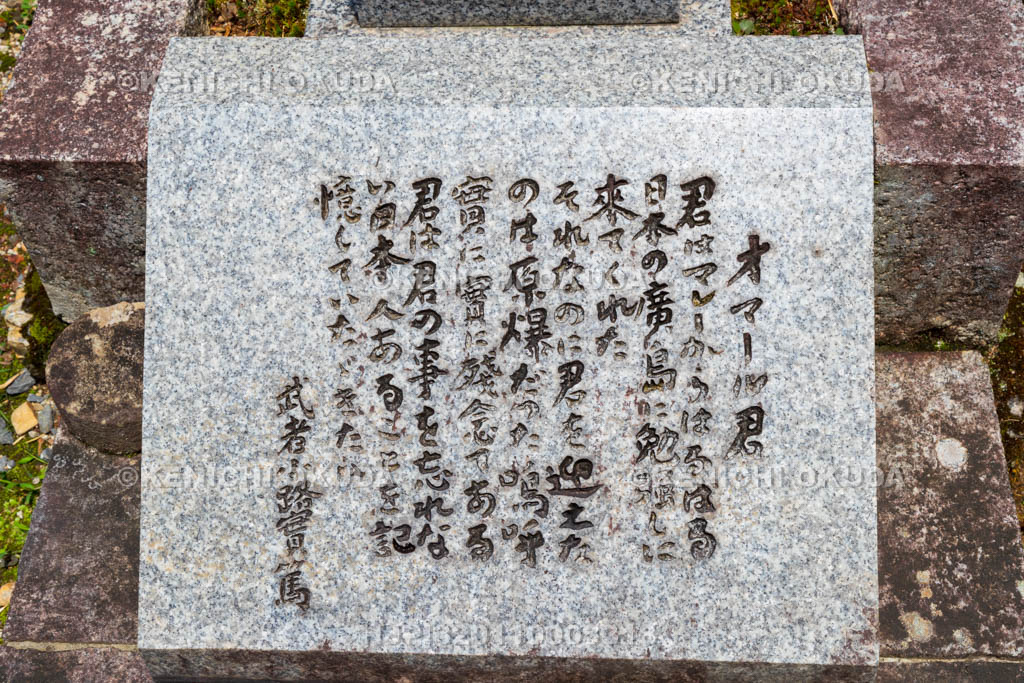 オマール君
君はマレーからはるばる
日本の廣島に勉強しに
來てくれた
それなのに君を迎えた
のは原爆だった嗚呼
實に實に残念である
君は君の事を忘れな
い日本人あることを記
憶していたゞきたい
武者小路實篤
©KENICHI OKUDA ©KENICHI OKUDA
©KENICHI OKUDA ©KENICHI OKUDA